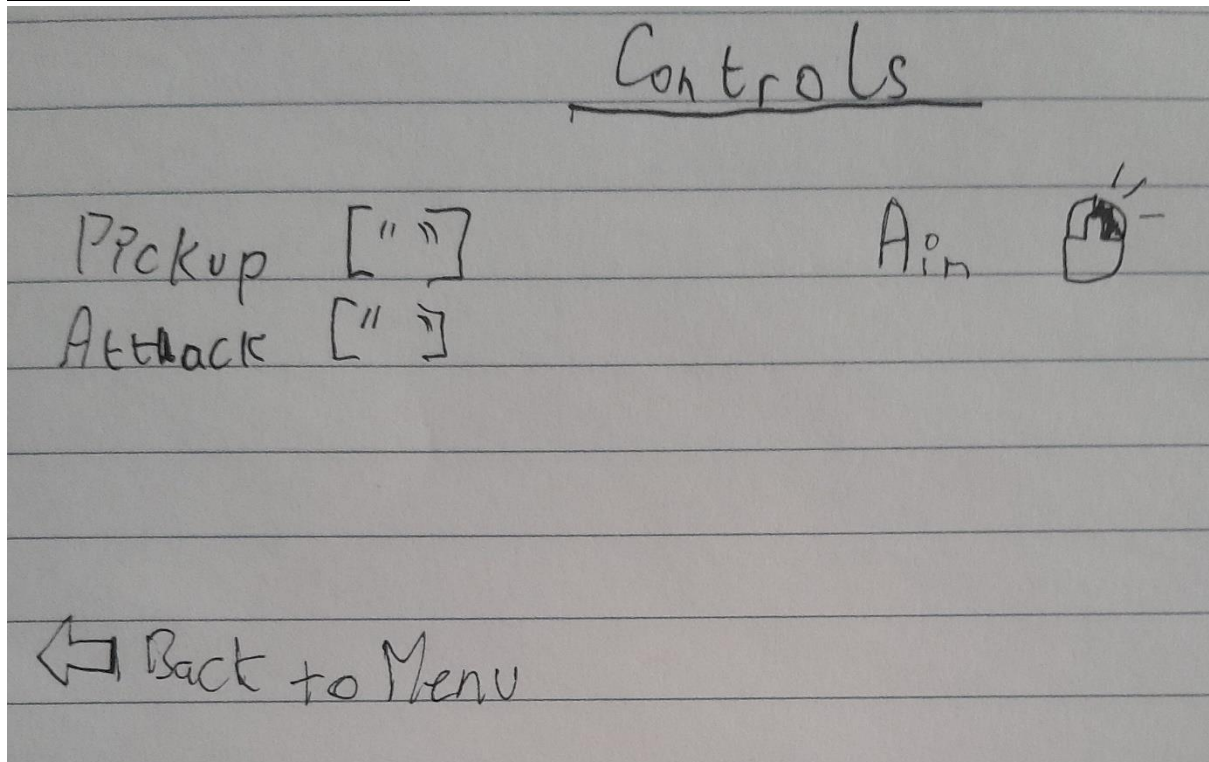 Controls
Pickup [" "] Aim
Attack [" "]
Back to Menu